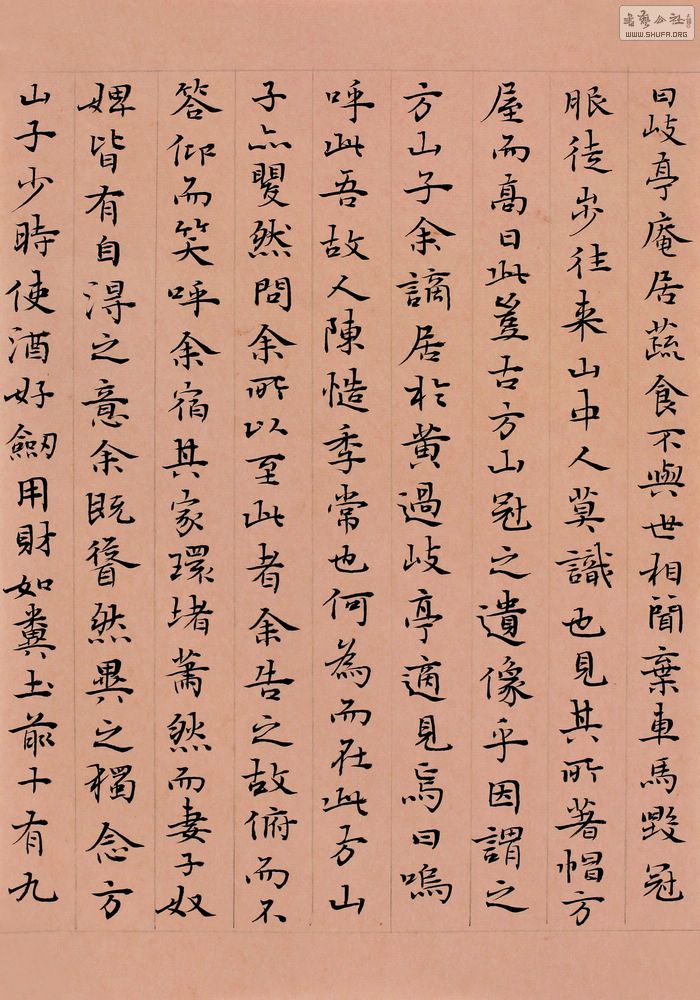 曰岐亭庵居蔬食不與世相聞棄車馬毀冠
服徒步往来山中人莫識也見其所著帽方
屋而高曰此豈古方山冠之遺像乎因謂之
方山子余謫居於黄過岐亭適見焉曰嗚
呼此吾故人陳慥季常也何為而在此方山
子亦矍然問余所以至此者余告之故俯而不
答仰而笑呼余宿其家環堵蕭然而妻子奴
婢皆有自得之意余既聳然異之獨念方
山子少時使酒好劒用財如糞土前十有九
WWW.SHUFA.ORG